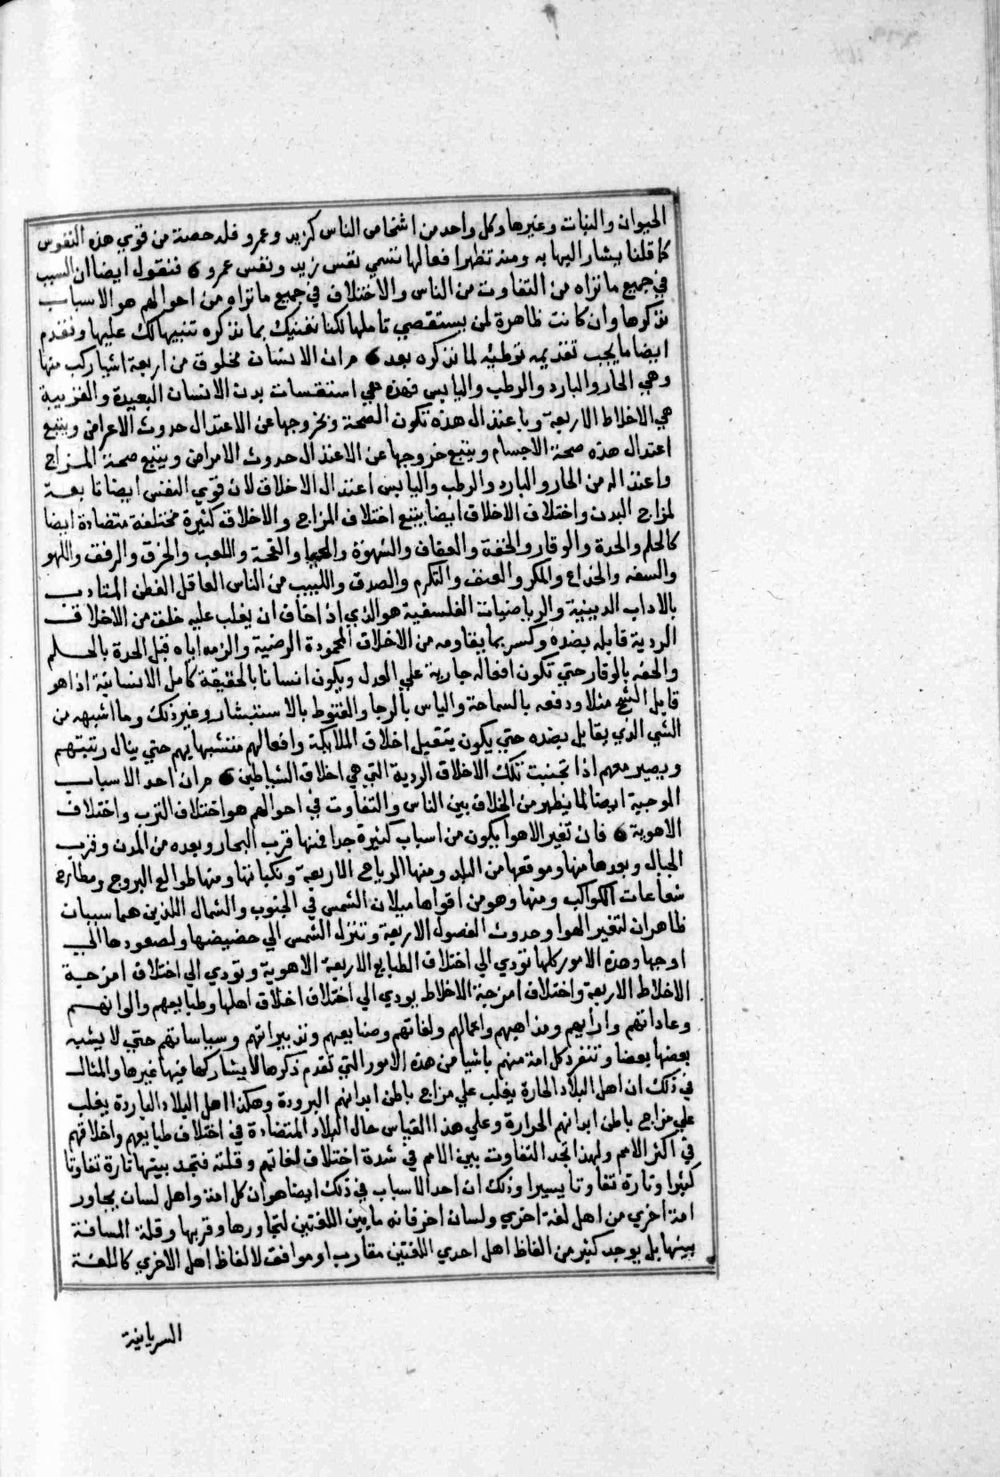 الحيوان والنبات وغيرها وكل واحد من اشخاص الناس كزيد وعمرو فله حصة من قوي هذه النفوس
كما قلنا يشار اليها به ومنه تظهر افعالها تسمي نفس زيد ونفس عمرو ٥ فنقول ايضا ان السبب
في جميع ما نراه من التفاوت من الناس والاختلاف في جميع ما نراه من احوالهم هو الاسباب
نذكرها وان كانت ظاهرة لمن يستقصي تاملها لكنا نفنيك بما نذكره تنبيها لك عليها ونقدم
ايضا ما يجب تقديمه توطيه لما نذكره بعد ٥ مر ان الانسان مخلوق من اربعة اشيا ركب منها
وهي الحار والبارد والرطب واليابس فهذه هي استقسات بدن الانسان البعيدة والقريبة
هي الاخلاط الاربعة وباعتدال هذه تكون الصحة وبخروجها عن الاعتدال حدوث الاعراض ويتبع
اعتدال هذه صحة الاجسام ويتبع خروجها عن الاعتدال حدوث الامراض ويتبع صحة المزاج
واعتداله من الحار والبارد والرطب واليابس اعتدال الاخلاق لان قوي النفس ايضا تابعة
لمزاج البدن واختلاف الاخلاق ايضا يتبع اختلاف المزاج والاخلاق كثيرة مختلفة متضادة ايضا
كالحلم والحدة والوقار والخفة والعفاف والشهوة والحيا والقحة واللعب والخرق والرفق واللهو
والسفه والخداع والمكر والعنف والتكرم والصدق واللبيب من الناس العاقل الفطن المتادب
بالاداب الدينية والرياضيات الفلسفية هو الذي اذا خاف ان يغلب عليه خلق من الاخلاق
الردية قابله بضده وكسر بما يقاومه من الاخلاق المحمودة الرضية والزمه اياه قبل الحدة بالحلم
والخفه بالوقار حتي تكون افعاله جارية علي العدل ويكون انسانا بالحقيقة كامل الانسانية اذا هو
قابل الشح مثلا ودفعه بالسماحة والياس بالرجا والقنوط بالاستبشار وغير ذلك وما اشبهه من
الشي الذي يقابل بضده حتي يكون يتقيل اخلاق الملايكة وافعالهم متشبها بهم حتي ينال رتبتهم
ويصير معهم اذا تجنبت تلك الاخلاق الردية التي هي اخلاق الشياطين ٥ مر ان احد الاسباب
الموجبة ايضا لما يظهر من الخلاف بين الناس والتفاوت في احوالهم هو اختلاف الترب واختلاف
الاهوية ٥ فان تغير الاهوا يكون من اسباب كثيرة جدا فمنها قرب البحار وبعده من المدن وقرب
الجبال وبعدها منها وموقعها من البلد ومنها الرياح الاربعة ونكباتها ومنها طوالع البروج ومطارح
شعاعات الكواكب ومنها وهو من اقواها ميلان الشمس في الجنوب والشمال اللذين هما سببان
ظاهران لتغير الهوا وحدوث الفصول الاربعة وتنزل الشمس الي حضيضها ولصعودها الي
اوجها وهذه الامور كلها تودي الي اختلاف الطبايع الاربعة الاهوية وتودي الي اختلاف امزجة
الاخلاط الاربعة واختلاف امزجة الاخلاط يودي الي اختلاف اخلاق اهلها وطبايعهم والوانهم
وعاداتهم وارايهم ومذاهبهم واعمالهم ولغاتهم وصنايعهم وتدبيراتهم وسياساتهم حتي لا يشبه
بعضها بعضا وتنفرد كل امة منهم باشيا من هذه الامور التي تقدم ذكرها لا يشاركها فيها غيرها والمثال
في ذلك ان اهل البلاد الحارة يغلب علي مزاج باطن ابدانهم البرودة وهكذا اهل البلاد الباردة يغلب
علي مزاج باطن ابدانهم الحرارة وعلي هذا القياس حال البلاد المتضادة في اختلاف طبايعهم واخلاقهم
في اكثر الامم ولهذا تجد التفاوت بين الامم في شدة اختلاف لغاتهم وقلته فتجد بينها تارة تفاوتا
كثيرا وتارة تفاوتا يسيرا وذلك ان احد الاسباب في ذلك ايضا هو ان كل امة واهل لسان يجاور
امة اخري من اهل لغة اخري ولسان اخر فانه ما بين اللغتين لتجاورها وقربها وقلة المسافة
بينها بل يوجد كثير من الفاظ اهل احدي اللغتين مقارب او موافق لالفاظ اهل الاخري كاللغة
السريانية